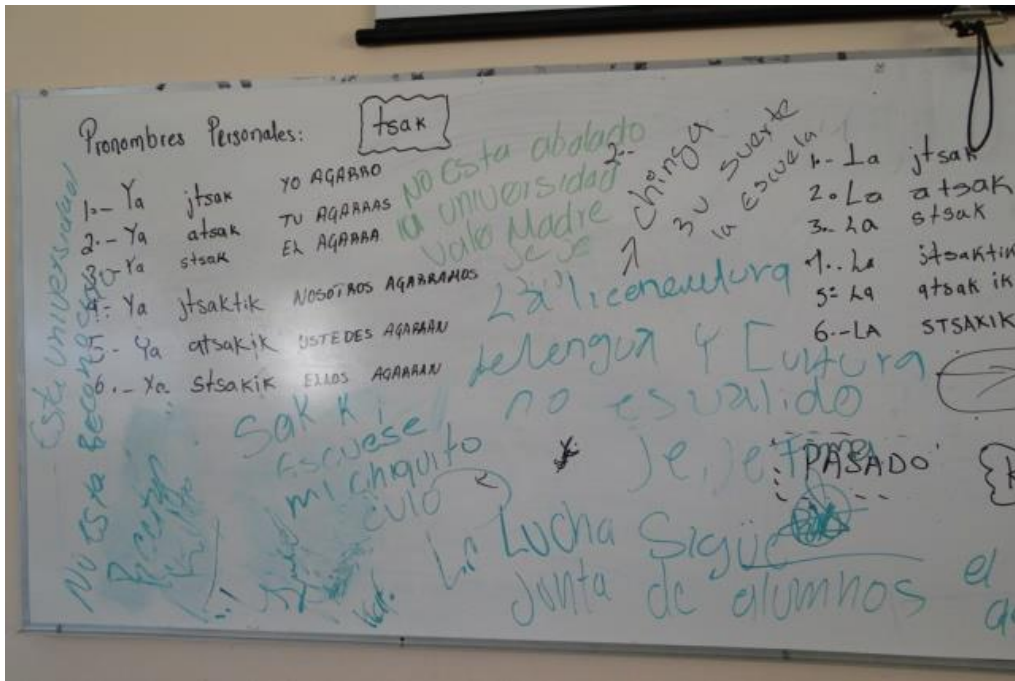 Pronombres Personales:
tsak
1.- Ya jtsak YO AGARRO
2.- Ya atsak TU AGARRAS
3.- Ya stsak EL AGARRA
4.- Ya jtsaktik NOSOTROS AGARRAMOS
5.- Ya atsakik USTEDES AGARRAN
6.- Ya stsakik ELLOS AGARRAN
NO esta abalado
la universidad
valo Madre
je je
chinga
su suerte
la escuela
1.- La jtsak
2. La atsak
3.- La stsak
4.. La jtsaktik
5= La atsak ik
6.-LA STSAKIK
Esta universidad
No Esta
La licenciatura
de lengua y Cultura
no es valido
je, je
PASADO
Sak k i
Escuese
mi chiquito
culo
La Lucha Sigue
Junta de alumnos
el